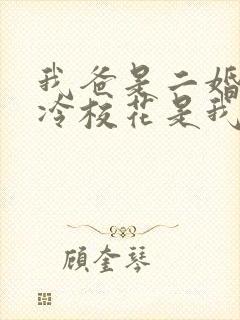 我爸是二婚
冷校花是我
顾奎琴